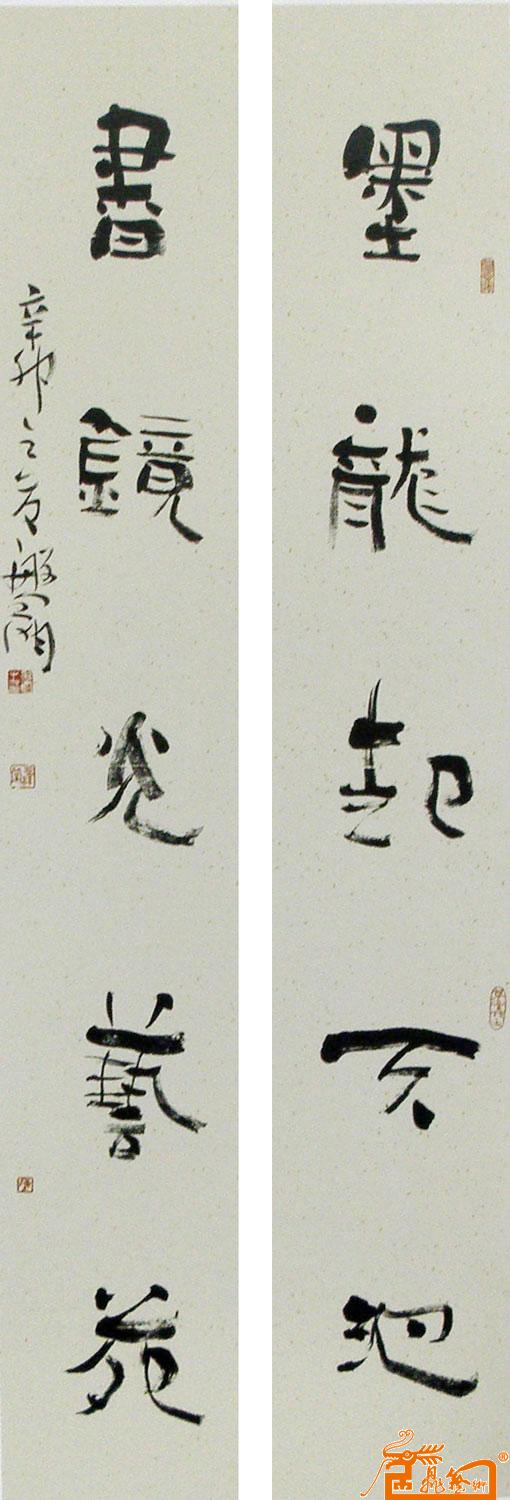 墨龍起天池
書鏡光藝苑
辛卯之